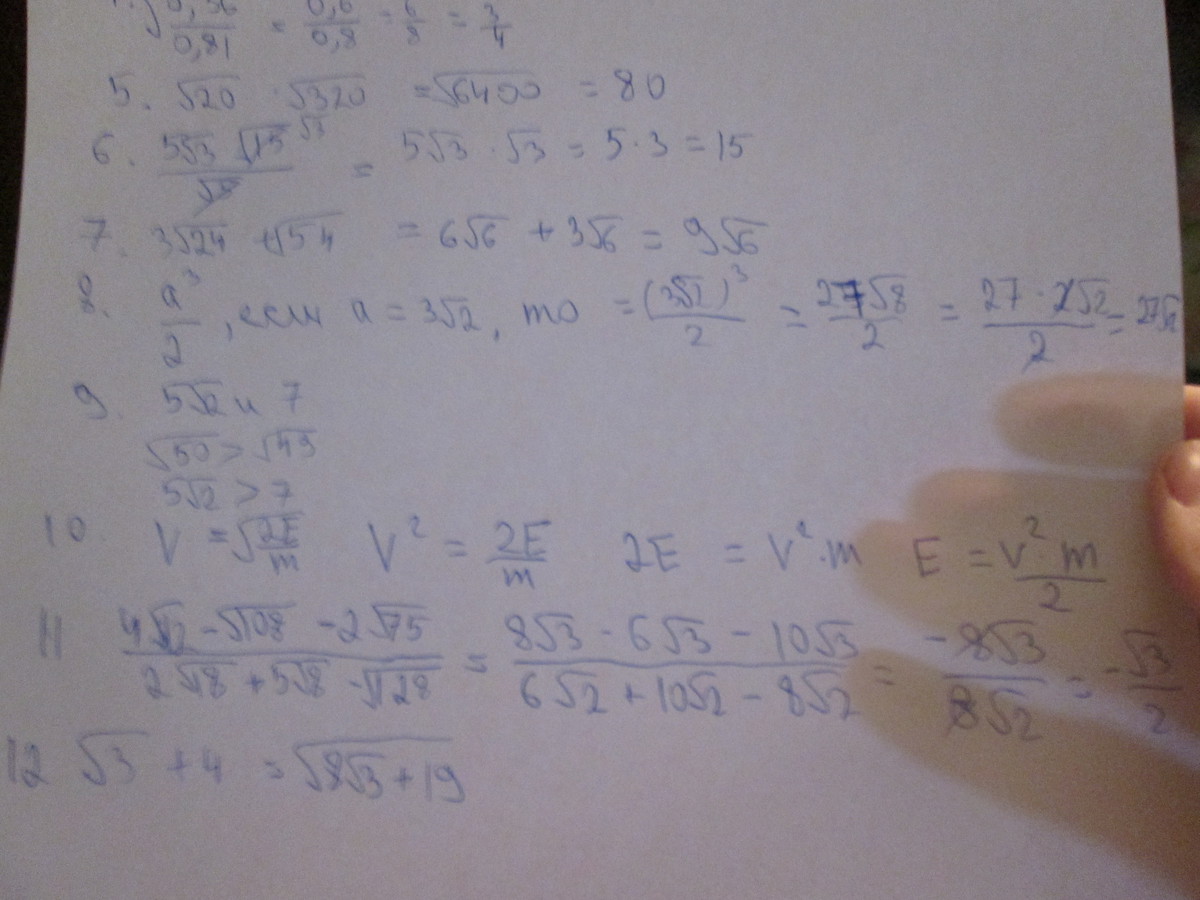 √0,36/0,81 = 0,6/0,8 = 6/8 = 3/4
5. √20 · √320 = √6400 = 80
6. 5√3 √15 √3 / √5 = 5√3 · √3 = 5 · 3 = 15
7. 3√24 + √54 = 6√6 + 3√6 = 9√6
8. a³/2, если a = 3√2, то = (3√2)³/2 = 27√8/2 = 27 · 2√2/2 = 27√2
9. 5√2 и 7
√50 > √49
5√2 > 7
10 V = √2E/m V² = 2E/m 2E = V² · m E = V² · m/2
11 4√12 - √108 - 2√75 / 2√18 + 5√8 - √128 = 8√3 - 6√3 - 10√3 / 6√2 + 10√2 - 8√2 = -8√3 / 8√2 = -√3/2
12 √3 + 4 = √8√3 + 19